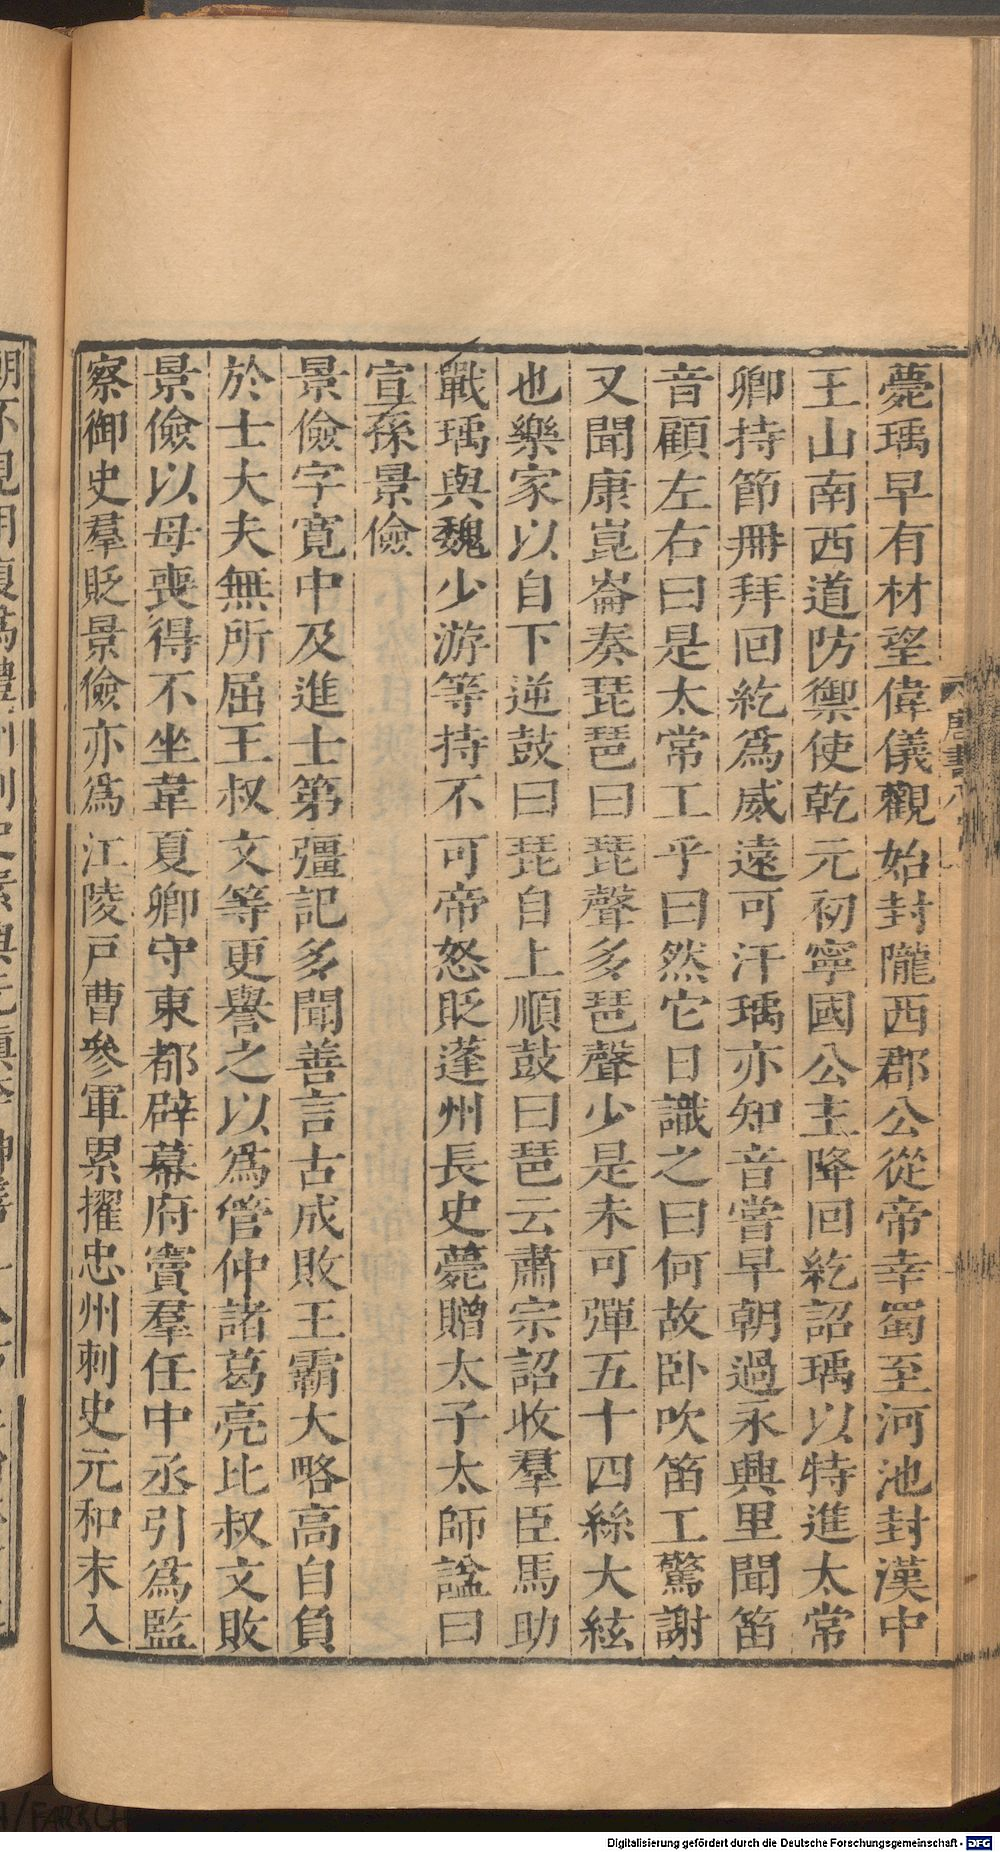 薨瑀早有材望偉儀觀始封隴西郡公從帝幸蜀至河池封漢中
王山南西道防禦使乾元初寧國公主降回紇詔瑀以特進太常
卿持節冊拜回紇爲威遠可汗瑀亦知音嘗早朝過永興里聞笛
音顧左右曰是太常工乎曰然它日識之曰何故卧吹笛工驚謝
又聞康崑崙奏琵琶曰琵聲多琶聲少是未可彈五十四絲大絃
也樂家以自下逆鼓曰琵自上順鼓曰琶云肅宗詔收羣臣馬助
戰瑀與魏少游等持不可帝怒貶蓬州長史薨贈太子太師諡曰
宣孫景儉
景儉字寬中及進士第彊記多聞善言古成敗王霸大略高自負
於士大夫無所屈王叔文等更譽之以爲管仲諸葛亮比叔文敗
景儉以母喪得不坐韋夏卿守東都辟幕府竇羣任中丞引爲監
察御史羣貶景儉亦爲江陵戸曹參軍累擢忠州刺史元和末入
Digitalisierung gefördert durch die Deutsche Forschungsgemeinschaft - DFG